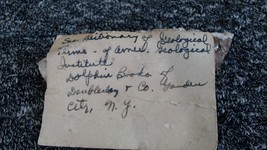 Dictionary of Geological
Terms - of Amer. Geological
Institute
Dolphin Books of
Doubleday & Co. Garden
City, N.Y.